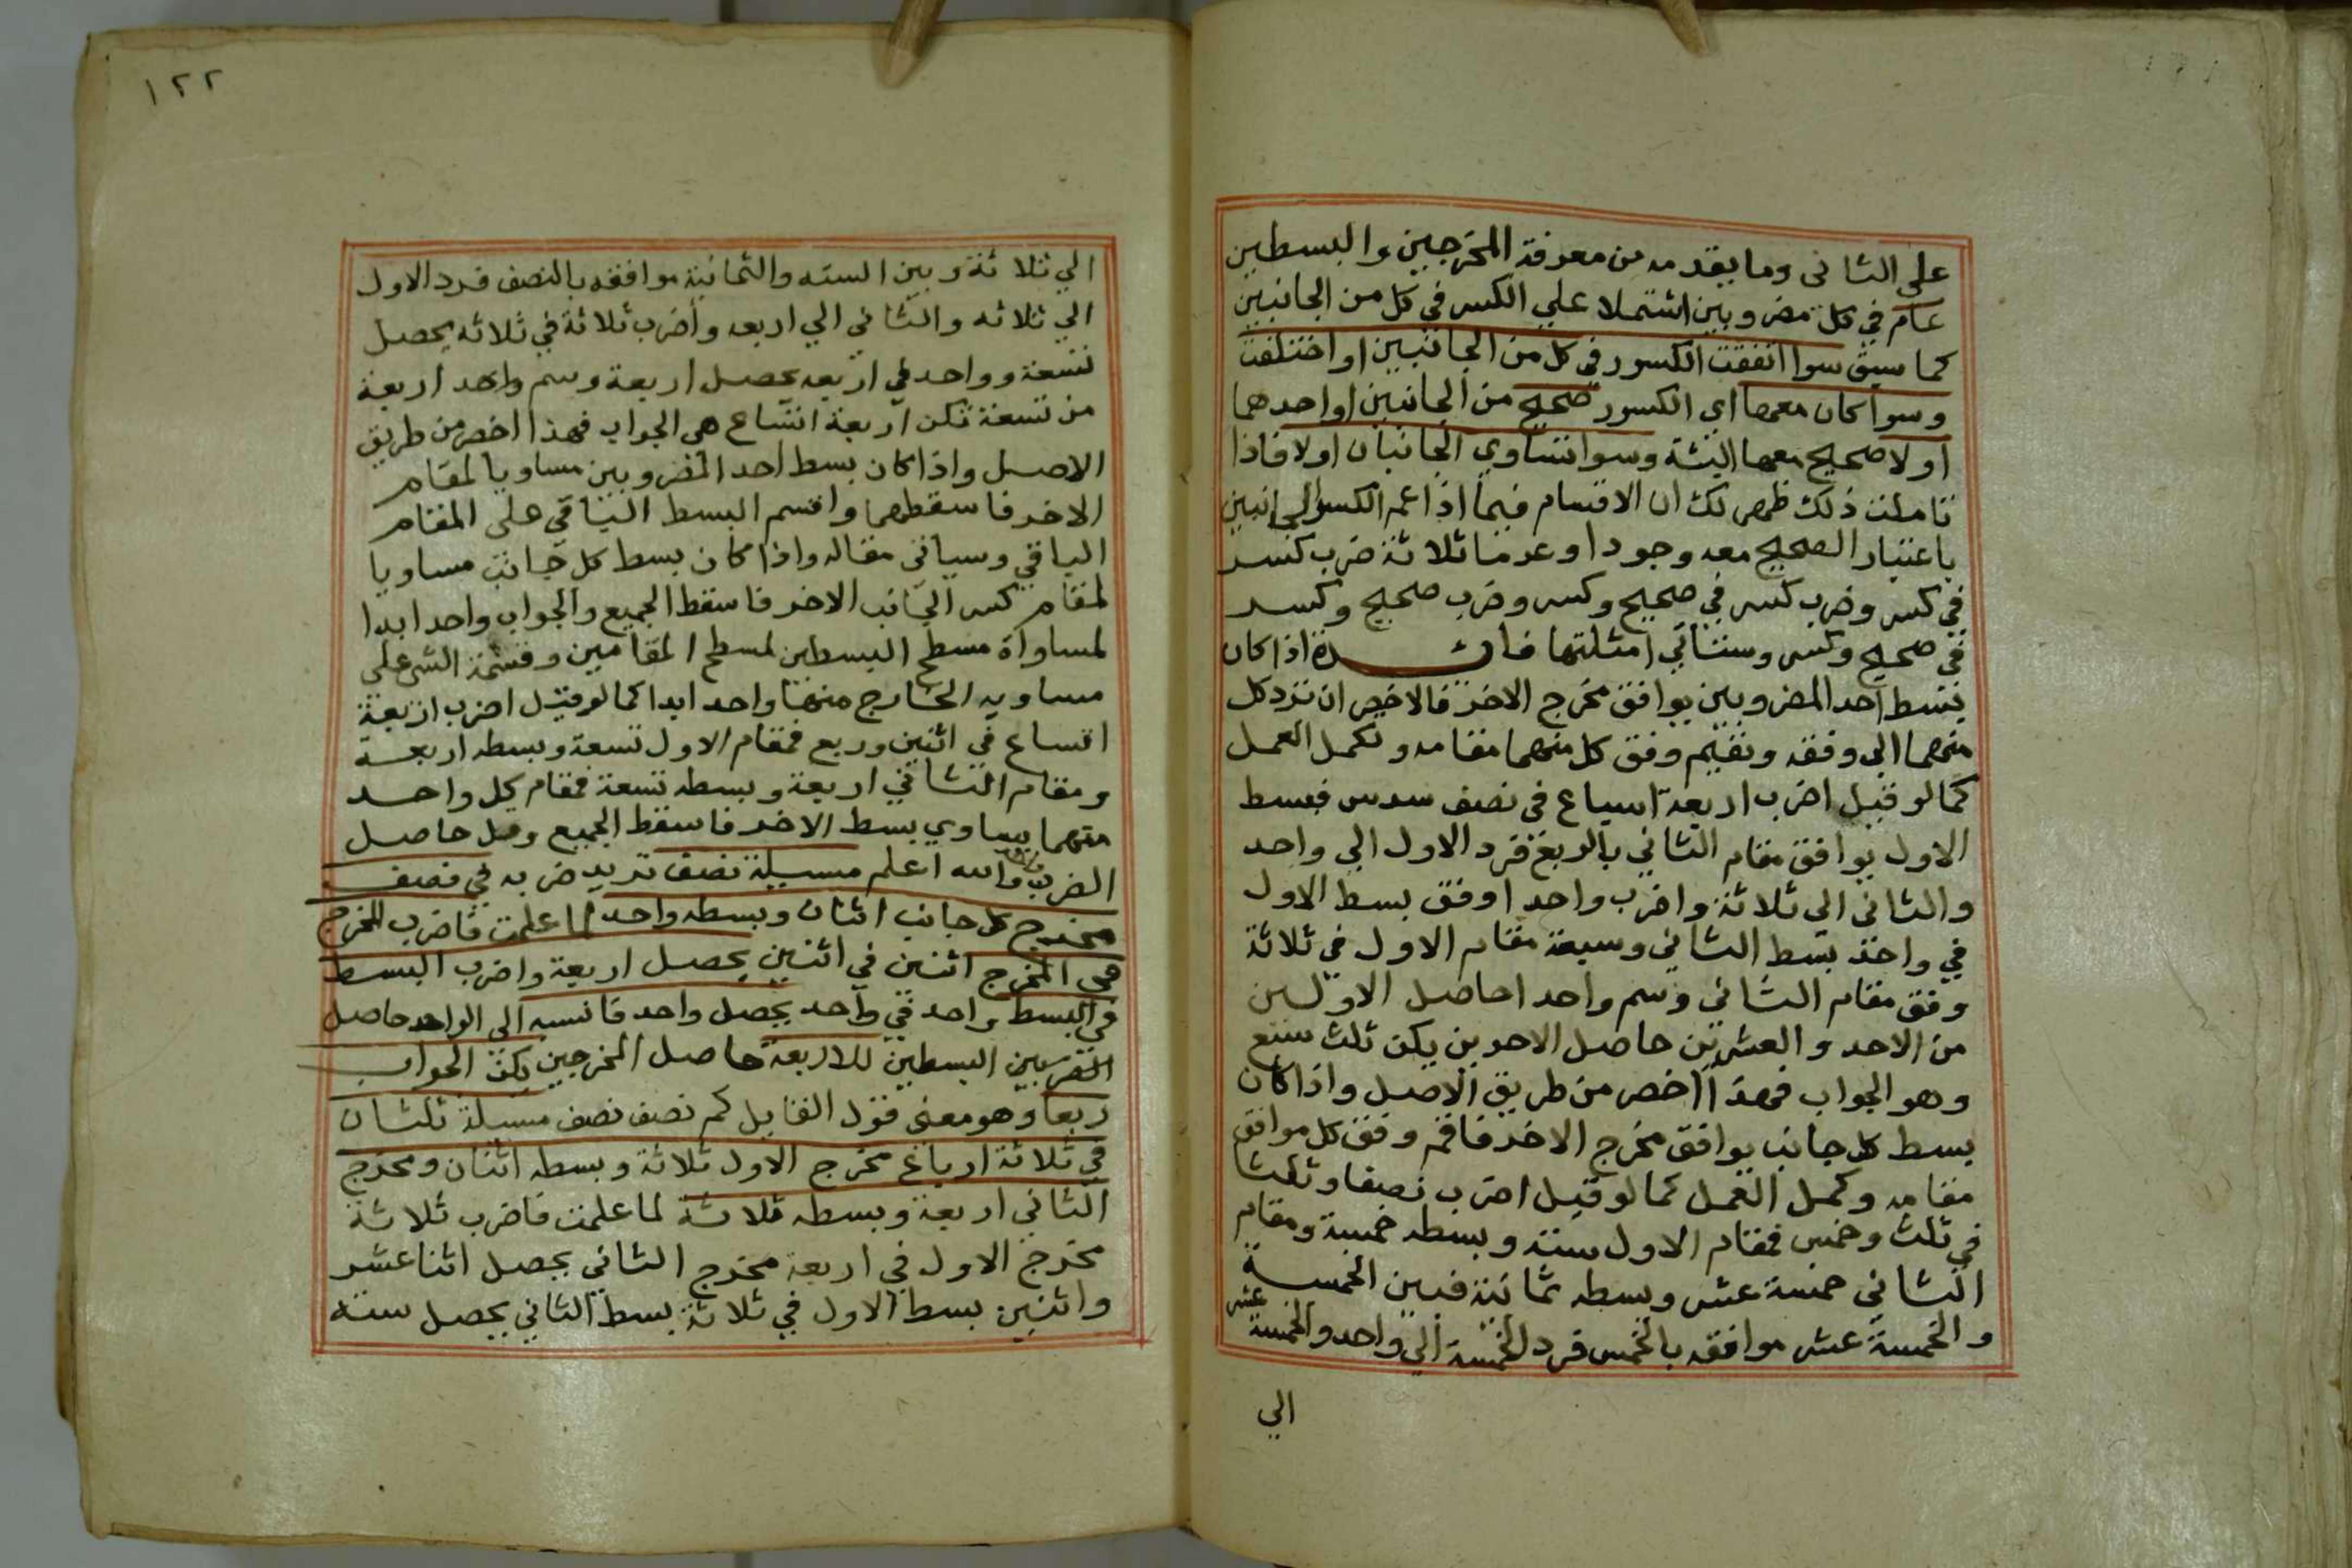 على الثانى وما يقدمه من معرفة المخرجين والبسطين
عام في كل مضروبين اشتملا علي الكسر في كل من الجانبين
كما سبق سوا اتفقت الكسور في كل من الجانبين او اختلفت
وسوا كان معها اى الكسور صحيح من الجانبين او احدهما
اولا صحيح معها البتة وسوا تساوي الجانبان اولا فاذا
تاملت ذلك ظهر لك ان الاقسام فيما اذا عم الكسر الجانبين
باعتبار الصحيح معه وجودا وعدما ثلاثة ضرب كسر
في كسر وضرب كسر في صحيح وكسر وضرب صحيح وكسر
في صحيح وكسر وستاتي امثلتها فائدة اذا كان
بسط احد المضروبين يوافق مخرج الاخر فالاخصر ان ترد كل
منهما الي وفقه وتقيم وفق كل منهما مقامه وتكمل العمل
كما لو قيل اضرب اربعة اسباع في نصف سدس فبسط
الاول يوافق مقام الثاني بالربع فرد الاول الي واحد
والثانى الي ثلاثة واضرب واحد اوفق بسط الاول
في واحد بسط الثاني وسبعة مقام الاول في ثلاثة
وفق مقام الثاني وسم واحد احاصل الاولين
من الاحد والعشرين حاصل الاخرين يكن ثلث سبع
وهو الجواب فهذا اخصر من طريق الاصل واذا كان
بسط كل جانب يوافق مخرج الاخر فاقم وفق كل موافق
مقامه وكمل العمل كما لو قيل اضرب نصفا وثلثا
في ثلث وخمس فمقام الاول ستة وبسطه خمسة ومقام
الثاني خمسة عشر وبسطه ثمانية فبين الخمسة
والخمسة عشر موافقه بالخمس فرد الخمسة الي واحد والخمسة عشر
الي
١٢٢
الي ثلاثة وبين الستة والثمانية موافقه بالنصف فرد الاول
الي ثلاثه والثاني الي اربعه واضرب ثلاثة في ثلاثه يحصل
تسعة وواحد في اربعه يحصل اربعة وسم واحد اربعة
من تسعة تكن اربعة اتساع هي الجواب فهذا اخصر من طريق
الاصل واذا كان بسط احد المضروبين مساويا لمقام
الاخر فاسقطهما واقسم البسط الباقي على المقام
الباقي وسياتى مثاله واذا كان بسط كل جانب مساويا
لمقام كسر الجانب الاخر فاسقط الجميع والجواب واحد ابدا
لمساواة مسطح البسطين لمسطح المقامين وقسمة الشى على
مساويه الخارج منها واحد ابدا كما لو قيل اضرب اربعة
اتساع في اثنين وربع فمقام الاول تسعة وبسطه اربعة
ومقام الثاني اربعة وبسطه تسعة فمقام كل واحد
منهما يساوي بسط الاخر فاسقط الجميع وقل حاصل
الضرب واحد والله اعلم مسيلة نصف تريد ضربه في نصف
مخرج كل جانب اثنان وبسطه واحد لما علمت فاضرب المخرج
في المخرج اثنين في اثنين يحصل اربعة واضرب البسط
في البسط واحد في واحد يحصل واحد فانسبه الى الواحد حاصل
البسطين للاربعة حاصل المخرجين يكن الجواب
ربعا وهو معنى قول القايل كم نصف نصف مسيلة ثلثان
في ثلاثة ارباع مخرج الاول ثلاثة وبسطه اثنان ومخرج
الثاني اربعة وبسطه ثلاثة لما علمت فاضرب ثلاثة
مخرج الاول في اربعة مخرج الثاني يحصل اثنا عشر
واثنين بسط الاول في ثلاثة بسط الثاني يحصل ستة